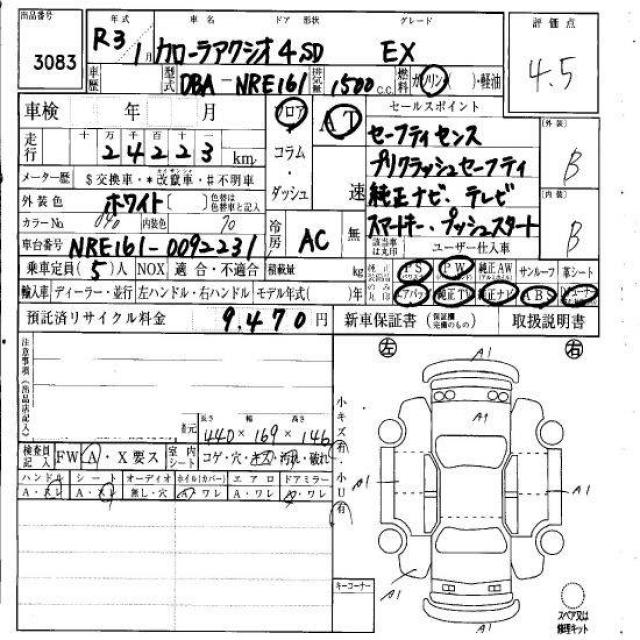 出品番号
3083
年式 車名 ドア 形状 グレード
R3 1月 カローラアクシオ 4 SD EX
評価点
4.5
車歴 型式 DBA-NRE161 排気量 1500 c.c. 燃料 ガソリン ( )・軽油
車検 年 月
フロア AT セールスポイント
走行 十 万 千 百 十 一
2 4 2 2 3 km
コラム・ダッシュ 速
セーフティセンス
プリクラッシュセーフティ
純正ナビ、テレビ
スマートキー・プッシュスタート
外装 B
内装 B
メーター歴 $交換車・*改竄車・#不明車
外装色 ホワイト ( ) 色替は色替車と記入
カラーNo. 040 内装色 70
冷房 AC 無
該当事は丸印 ユーザー仕入車
車台番号 NRE161-0092231
乗車定員(5)人 NOX 適合・不適合 積載量 kg
純正のみ丸印 PS PW 純正AW サンルーフ 革シート
輸入車 ディーラー・並行 左ハンドル・右ハンドル モデル年式( )年
エアバッグ 純正TV 純正ナビ ABS
預託済リサイクル料金 9.470 円 新車保証書 (保証欄完備のもの) 取扱説明書
注意事項(出品店記入)
左 右
A1
A1
A1
A1
A1
A1
車両寸法 長さ 幅 高さ
440 × 169 × 146
検査員記入 FW A・X要ス 室内シート コゲ・穴・キズ・汚れ・破れ
小キズ有・小U有
ハンドル シート オーディオ ホイル(カバー) エアロ ドアミラー
A・スレ A・スレ 無し・穴 A・ワレ A・ワレ A・ワレ
キーコーナー
スペア又は修理キット